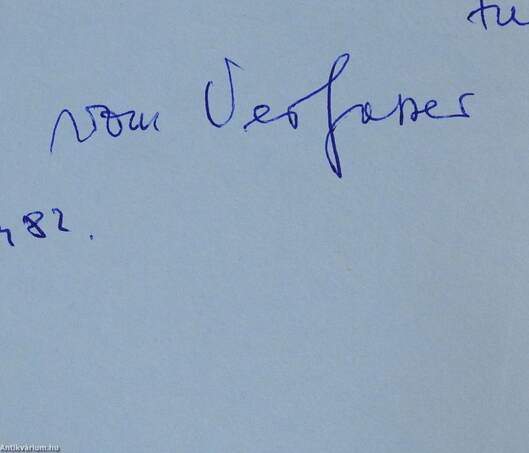 tu
vom Verfasser
82.
Antikvárium.hu